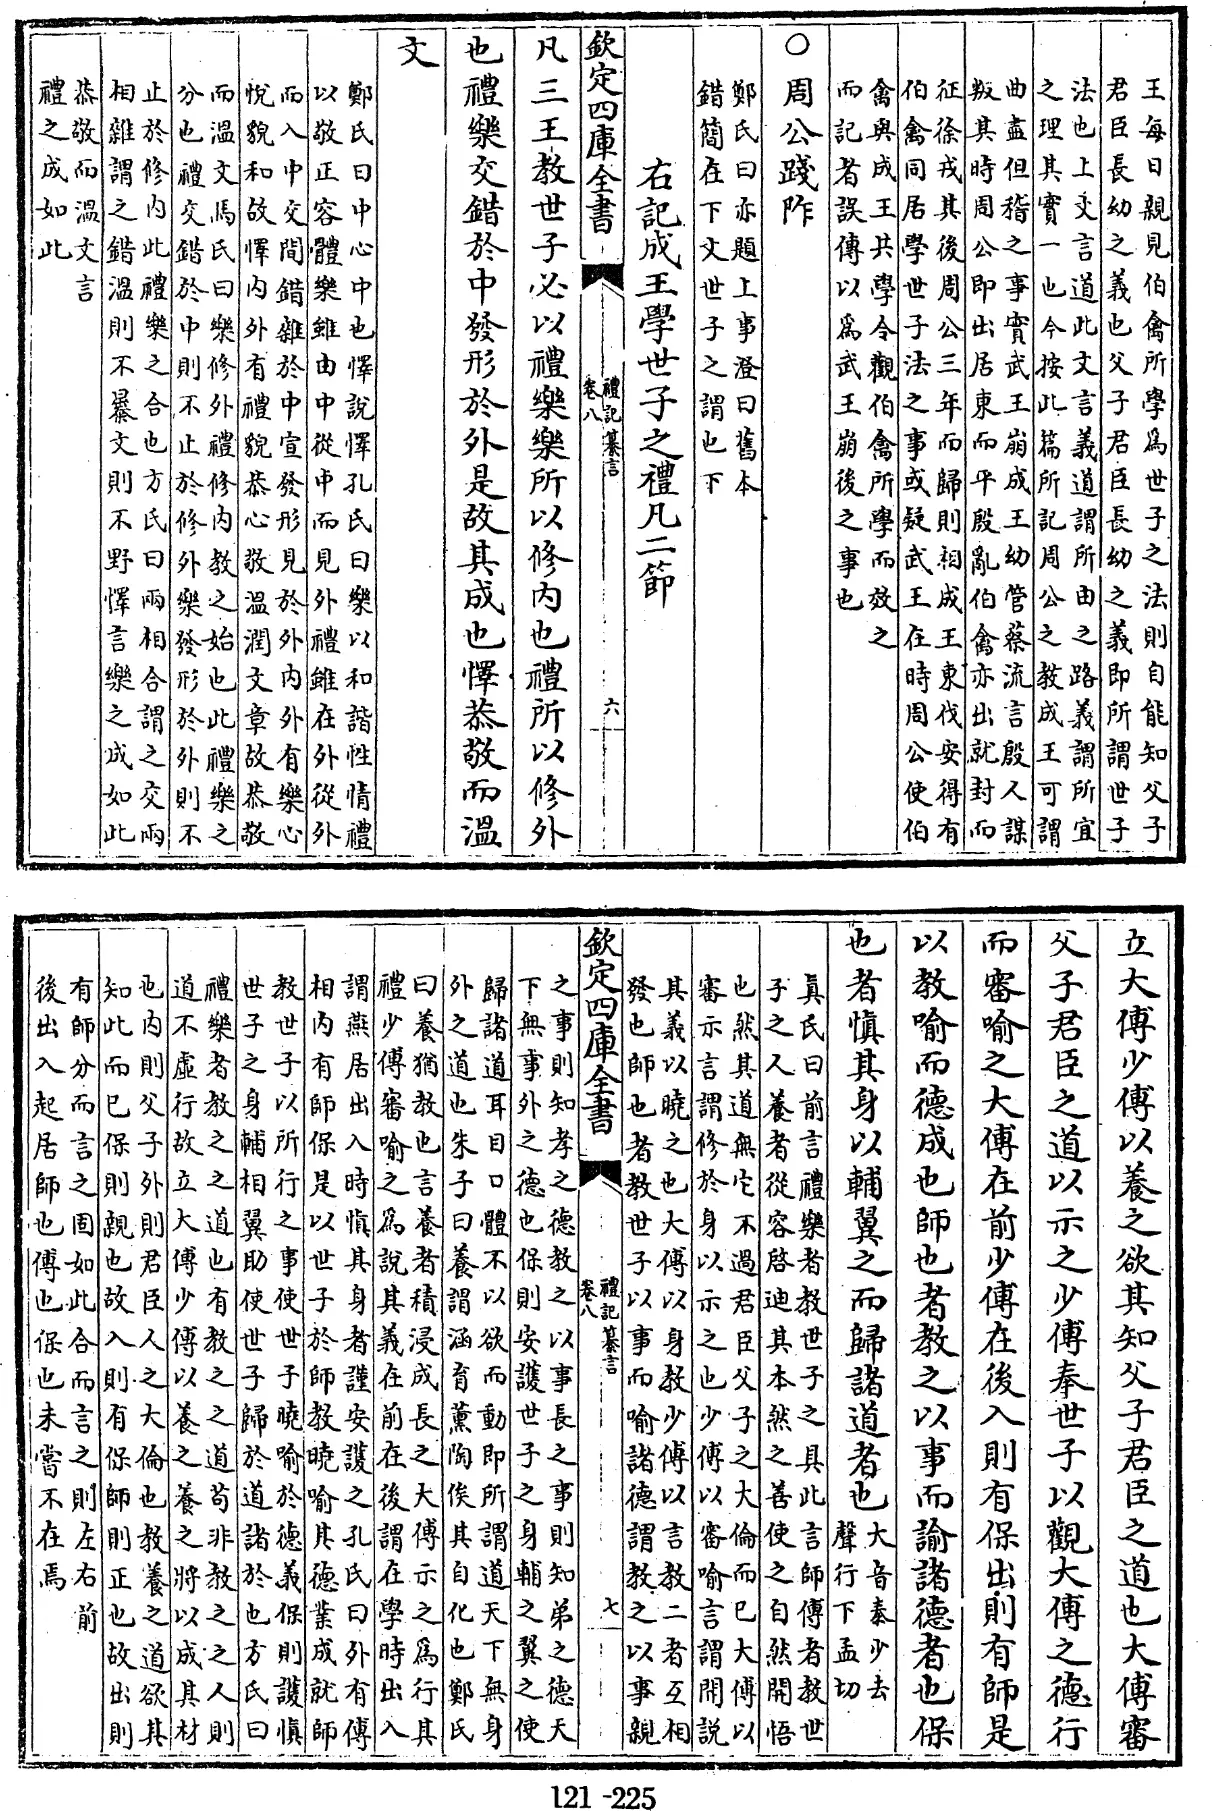 王每日親見伯禽所學爲世子之法則自能知父子
君臣長幼之義也父子君臣長幼之義即所謂世子
法也上文言道此文言義道謂所由之路義謂所宜
之理其實一也今按此篇所記周公之教成王可謂
曲盡但稽之事實武王崩成王幼管蔡流言殷人謀
叛其時周公即出居東而平殷亂伯禽亦出就封而
征徐戎其後周公三年而歸則相成王東伐安得有
伯禽同居學世子法之事或疑武王在時周公使伯
禽與成王共學令觀伯禽所學而效之
而記者誤傳以爲武王崩後之事也
○周公踐阼
鄭氏曰亦題上事澄曰舊本
錯簡在下文世子之謂也下
右記成王學世子之禮凡二節
欽定四庫全書
禮記纂言
卷八
六
凡三王教世子必以禮樂樂所以修內也禮所以修外
也禮樂交錯於中發形於外是故其成也懌恭敬而溫
文
鄭氏曰中心中也懌說懌孔氏曰樂以和諧性情禮
以敬正容體樂雖由中從中而見外禮雖在外從外
而入中交間錯雜於中宣發形見於外內外有樂心
悅貌和故懌內外有禮貌恭心敬溫潤文章故恭敬
而溫文馮氏曰樂修外禮修內教之始也此禮樂之
分也禮交錯於中則不止於修外樂發形於外則不
止於修內此禮樂之合也方氏曰兩相合謂之交兩
相雜謂之錯溫則不暴文則不野懌言樂之成如此
恭敬而溫文言
禮之成如此
立大傅少傅以養之欲其知父子君臣之道也大傅審
父子君臣之道以示之少傅奉世子以觀大傅之德行
而審喻之大傅在前少傅在後入則有保出則有師是
以教喻而德成也師也者教之以事而諭諸德者也保
也者慎其身以輔翼之而歸諸道者也
大音泰少去
聲行下孟切
眞氏曰前言禮樂者教世子之具此言師傅者教世
子之人養者從容啓迪其本然之善使之自然開悟
也然其道無它不過君臣父子之大倫而已大傅以
審示言謂修於身以示之也少傅以審喻言謂開說
其義以曉之也大傅以身教少傅以言教二者互相
發也師也者教世子以事而喻諸德謂教之以事親
欽定四庫全書
禮記纂言
卷八
七
之事則知孝之德教之以事長之事則知弟之德天
下無事外之德也保則安護世子之身輔之翼之使
歸諸道耳目口體不以欲而動即所謂道天下無身
外之道也朱子曰養謂涵育薰陶俟其自化也鄭氏
曰養猶教也言養者積浸成長之大傅示之爲行其
禮少傅審喻之爲說其義在前在後謂在學時出入
謂燕居出入時慎其身者謹安護之孔氏曰外有傅
相內有師保是以世子於師教曉喻其德業成就師
教世子以所行之事使世子曉喻於德義保則護慎
世子之身輔相翼助使世子歸於道諸於也方氏曰
禮樂者教之之道也有教之之道苟非教之之人則
道不虛行故立大傅少傅以養之養之將以成其材
也內則父子外則君臣人之大倫也教養之道欲其
知此而已保則親也故入則有保師則正也故出則
有師分而言之固如此合而言之則左右前
後出入起居師也傅也保也未嘗不在焉
121-225